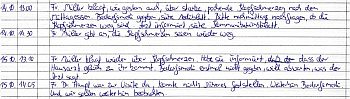 14.10. 13:00 Fr. Müller klagt, wie gestern auch, über starke, pochende Kopfschmerzen nach dem
Mittagessen. Bedarfsmedi gegeben, siehe Bitte nachmittags nachfragen, ob die
Kopfschmerzen weg sind. Arzt informiert, siehe Kommunikationsblatt.
14.10. 14:30 Fr. Müller gibt an, die Kopfschmerzen seien wieder weg.
15.10. 13:10 Fr. Müller klagt wieder über Kopfschmerzen. Habe sie informiert, dass der
Hausarzt gleich zu ihr kommt. Bedarfsmedi erstmal nicht gegeben, will abwarten, was der
Arzt sagt.
15.10. 14:05 Dr. Haupt war zur Visite da, konnte nichts Sicheres feststellen. Weiterhin Bedarfsmedi
und wir sollen weiterhin beobachten.